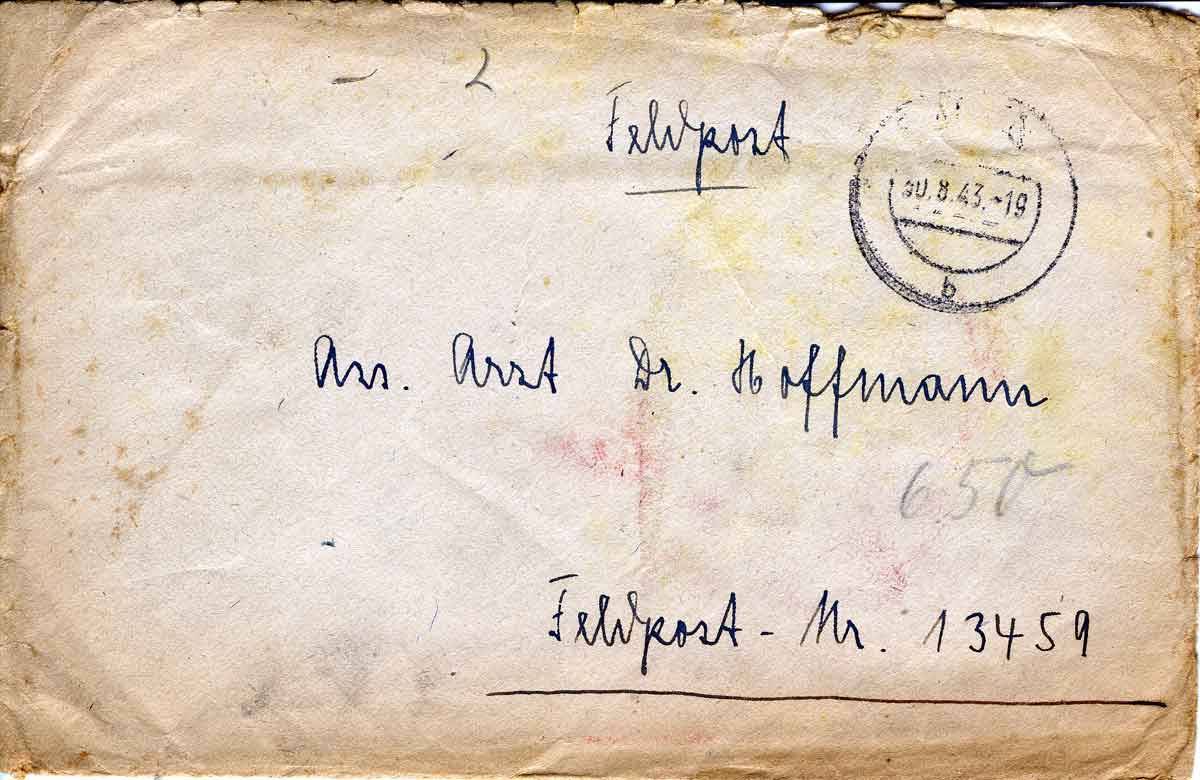 2
Feldpost
30.8.43.-19
b
Ass. Arzt Dr. Hoffmann
650
Feldpost-Nr. 13459